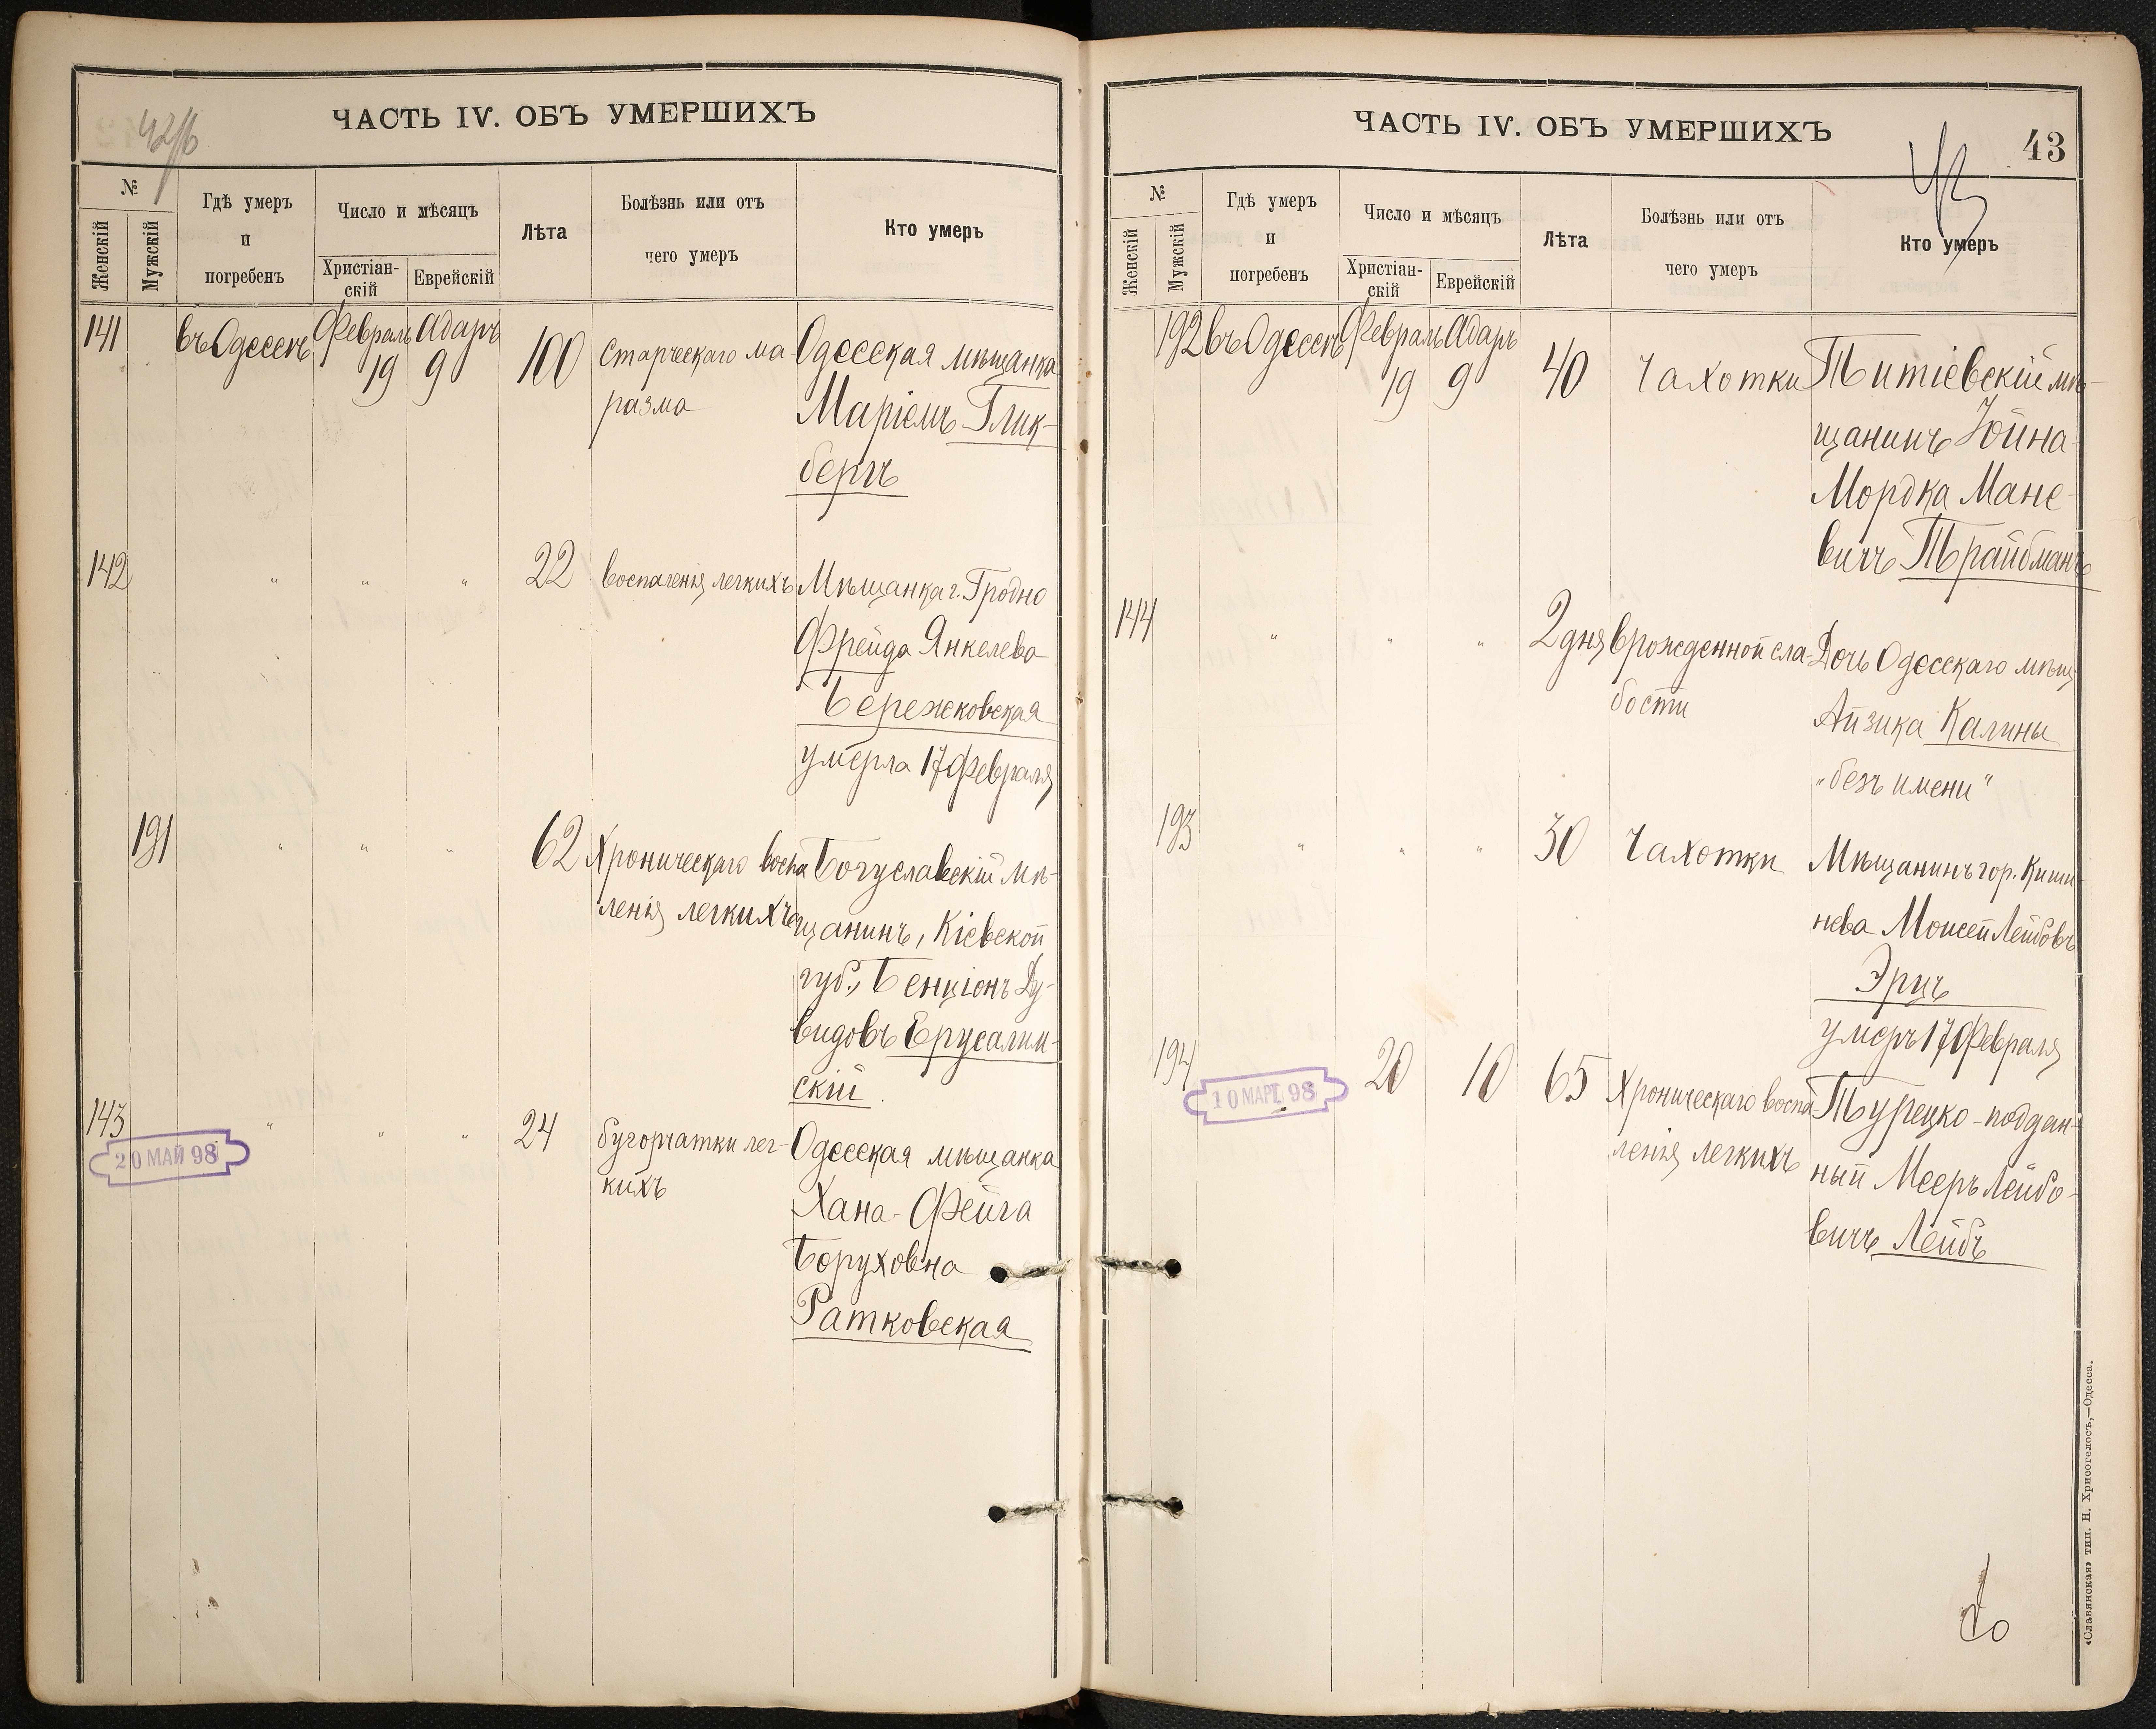 42/б
ЧАСТЬ IV. ОБЪ УМЕРШИХЪ
№
Женскій
Мужскій
Гдѣ умеръ
и
погребенъ
Число и мѣсяцъ
Христіан-
скій
Еврейскій
Лѣта
Болѣзнь или отъ
чего умеръ
Кто умеръ
141 въ Одессѣ Февраль 19 Адаръ 9 100 Старческаго ма- Одесская мѣщанка
разма Маріемъ Глик-
бергъ
142 " " " 22 воспаленія легкихъ Мѣщанка г. Гродно
Фрейда Янкелева
Бережковская
умерла 17 Февраля
191 " " " 62 Хроническаго воспа Богуславскій мѣ-
ленія легкихъ щанинъ, Кіевской
губ., Бенціонъ Ду-
видовъ Ерусалим-
скій.
143 " " " 24 бугорчатки лег- Одесская мѣщанка
кихъ Хана-Фейга
Боруховна
Ратковская
20 МАЙ 98
ЧАСТЬ IV. ОБЪ УМЕРШИХЪ
43
43
№
Женскій
Мужскій
Гдѣ умеръ
и
погребенъ
Число и мѣсяцъ
Христіан-
скій
Еврейскій
Лѣта
Болѣзнь или отъ
чего умеръ
Кто умеръ
192 въ Одессѣ Февраль 19 Адаръ 9 40 Чахотки Титіевскій мѣ-
щанинъ Іойна-
Мордка Мане-
вичъ Трайбманъ
144 " " " 2 дня врожденной сла- Дочь Одесскаго мѣщ.
бости Айзика Калины
"безъ имени"
193 " " " 30 Чахотки Мѣщанинъ гор. Киши-
нева Моисей Лейбовъ
Эрцъ
умеръ 17 Февраля
194 20 10 65 Хроническаго воспа- Турецко-поддан-
ленія легкихъ ный Мееръ Лейбо-
вичъ Лейбъ
10 МАРТ. 98
«Славянская» тип. Н. Хрисогелосъ,—Одесса.